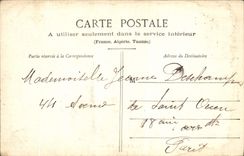 CARTE POSTALE
A utiliser seulement dans le service intérieur
(France, Algérie, Tunisie)
Partie réservée à la Correspondance
Adresse du Destinataire
Mademoiselle Jeanne Deschamps
de Saint Ouen
Paris